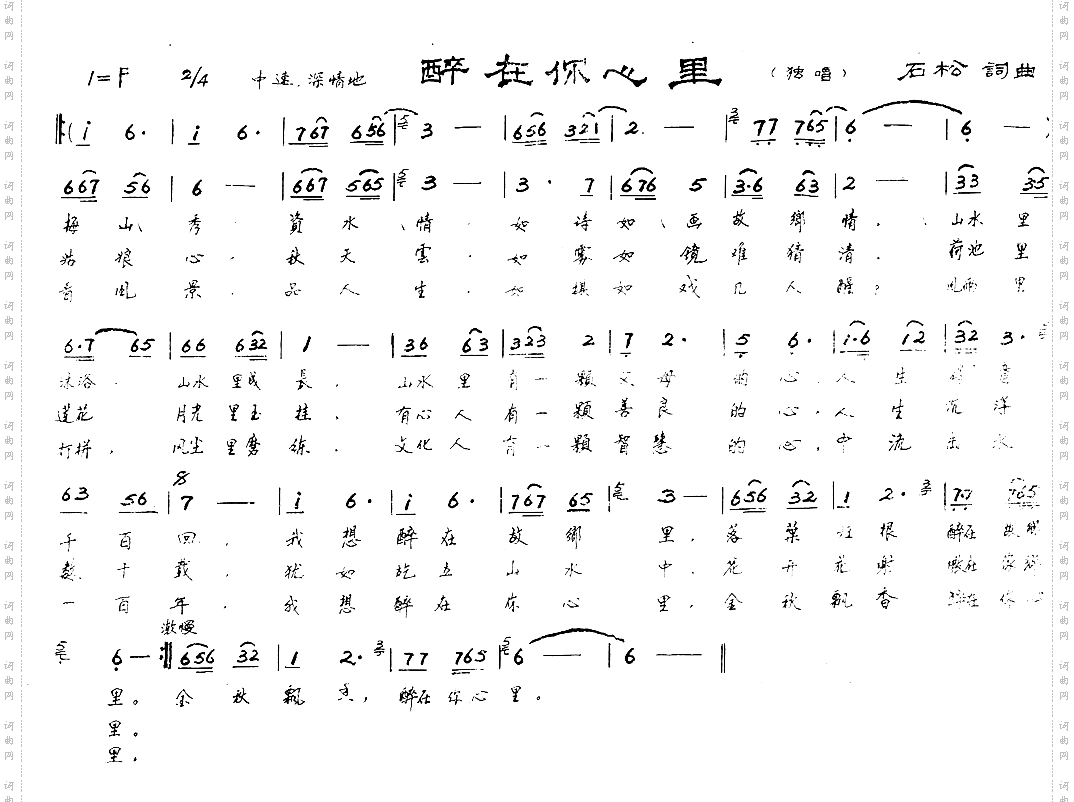 醉在你心里
1=F 2/4 中速.深情地 (独唱) 石松 詞曲
‖:(i 6· | i 6· | 767 656 | 3 — | 656 321 | 2 — | 77 765 | 6 — | 6 — )
667 56 | 6 — | 667 565 | 3 — | 3· 7 | 676 5 | 3·6 63 | 2 — | 33 35
梅山、秀 資水、情. 如诗如、画故鄉情. 山水里
姑娘心. 秋天雲. 如雾如镜难猜清. 荷池里
风景. 品人生. 如棋如戏几人醒? 风雨里
6·7 65 | 66 632 | 1 — | 36 63 | 323 2 | 7 2· | 5 6· | i·6 i2 | 32 3·
沐浴. 山水里成長. 山水里有一顆父母的心. 人生
莲花 月光里玉挂. 有心人有一顆善良的心. 人生沉浮
打拼. 风尘里磨练. 文化人有一顆智慧的心, 中流击水
63 56 | 7 — | i 6· | i 6· | 767 65 | 3 — | 656 32 | 1 2· | 7·7 765
8
千百回. 我想醉在故鄉里. 落葉 根 醉在故鄉
数十载. 犹如屹立山水中. 花开花谢
一百年. 我想醉在你心里. 金秋飘香 醉在你心
漸慢
6 — :‖ 656 32 | 1 2· | 77 765 | 6 — | 6 — ‖
里。金秋飄香, 醉在你心里。
里。
里.
词曲网